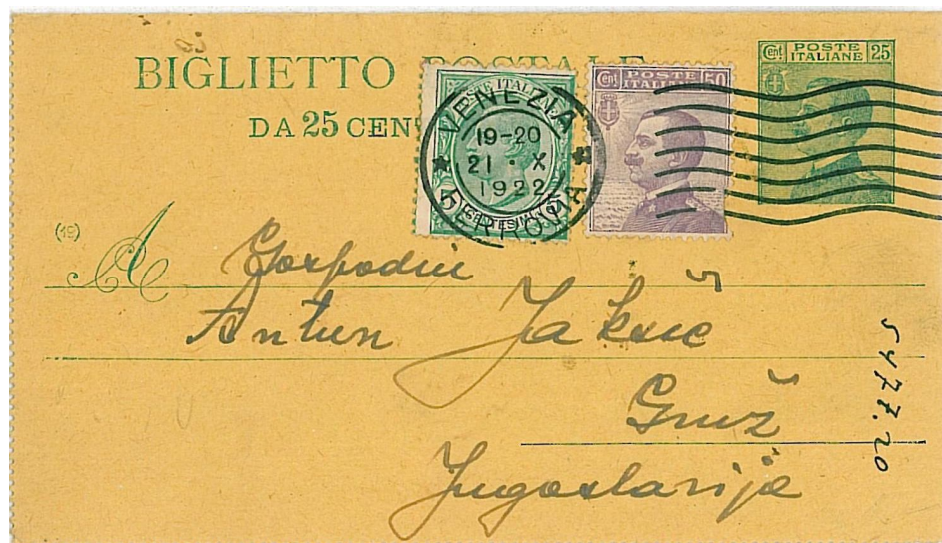 BIGLIETTO POSTALE
DA 25 CEN
Cent POSTE ITALIANE 25
POSTE ITAL
5 CENTESIMI 5
Cent POSTE ITALIANE 50
VENEZIA
19-20
21 · X
1922
FERROVIA
(19)
A Gospodin
Antun Jakšić
Gruž
Jugoslavija
5477.20